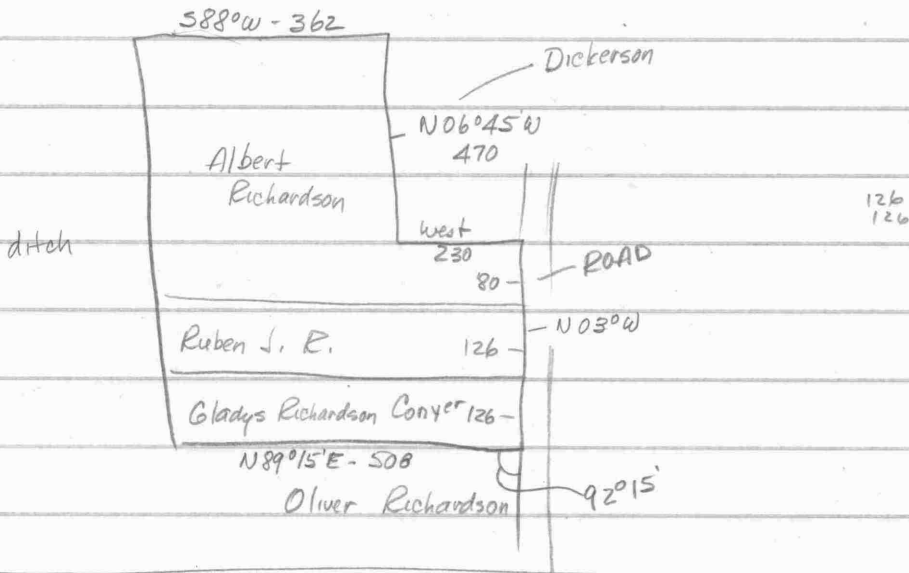 S88°W - 362
Dickerson
N06°45'W
470
Albert
Richardson
126
126
ditch
West
230
ROAD
80
N03°W
Ruben J. R.
126
Gladys Richardson Conyer 126
N89°15'E - 508
92°15'
Oliver Richardson